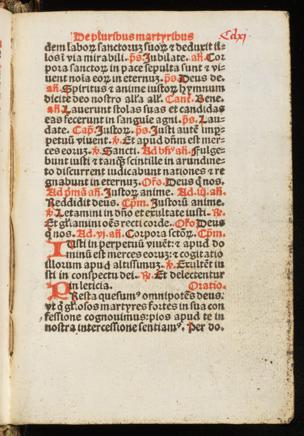 De pluribus martyribus Cclxj.
dem labor⁊ sanctoruꝫ suor⁊ ⁊ deduxit il-
los ī via mirabili. p̄s. Jubilate. an̄. Cor
pora sanctor⁊ in pace sepulta sunt ⁊ vi-
uent noīa eor⁊ in eternuꝫ. p̄s. Deus de.
an̄. Spiritus ⁊ anime iustor⁊ hymnum
dicite deo nostro all'a all'. Cant̄. Bene.
an̄. Lauerunt stolas suas et candidas
eas fecerunt in sanguīe agni. p̄s. Lau-
date. Cap̄. Justor⁊. p̄s. Justi autē imp̄-
petuū viuent. ꝟ. Et apud dn̄m est mer-
ces eoruꝫ. ꝟ. Sancti. Ad bn̄s an̄. Fulge-
bunt iusti ⁊ tanqꝫ scintille in arundine-
to discurrent iudicabunt nationes ⁊ re
gnabunt in eternuꝫ. Oro. Deus q̄ nos.
Ad p̄mā an̄. Justor⁊ anime. Ad. iij. an̄.
Reddidit deus. Cpm̄. Justorū anime.
ꝟ. Letamini in dn̄o et exultate iusti. ꝶ.
Et gl'iamini oēs recti corde. Oro Deus
q̄ nos. Ad. vi. an̄. Corpora sctōr⁊. Cpm̄.
Justi in perpetuū viuēt: ⁊ apud do
minū est merces eoruꝫ: ⁊ cogitatio
illorum apud altissimuꝫ. ꝟ. Exultēt iu
sti in conspectu dei. ꝶ. Et delectentur
in leticia. Oratio.
PResta quesumꝰ omnipotēs deus:
vt q̄ gl'osos martyres fortes in sua con
fessione cognouimus: pios apud te in
nostra intercessione sentiamꝰ. Per do.